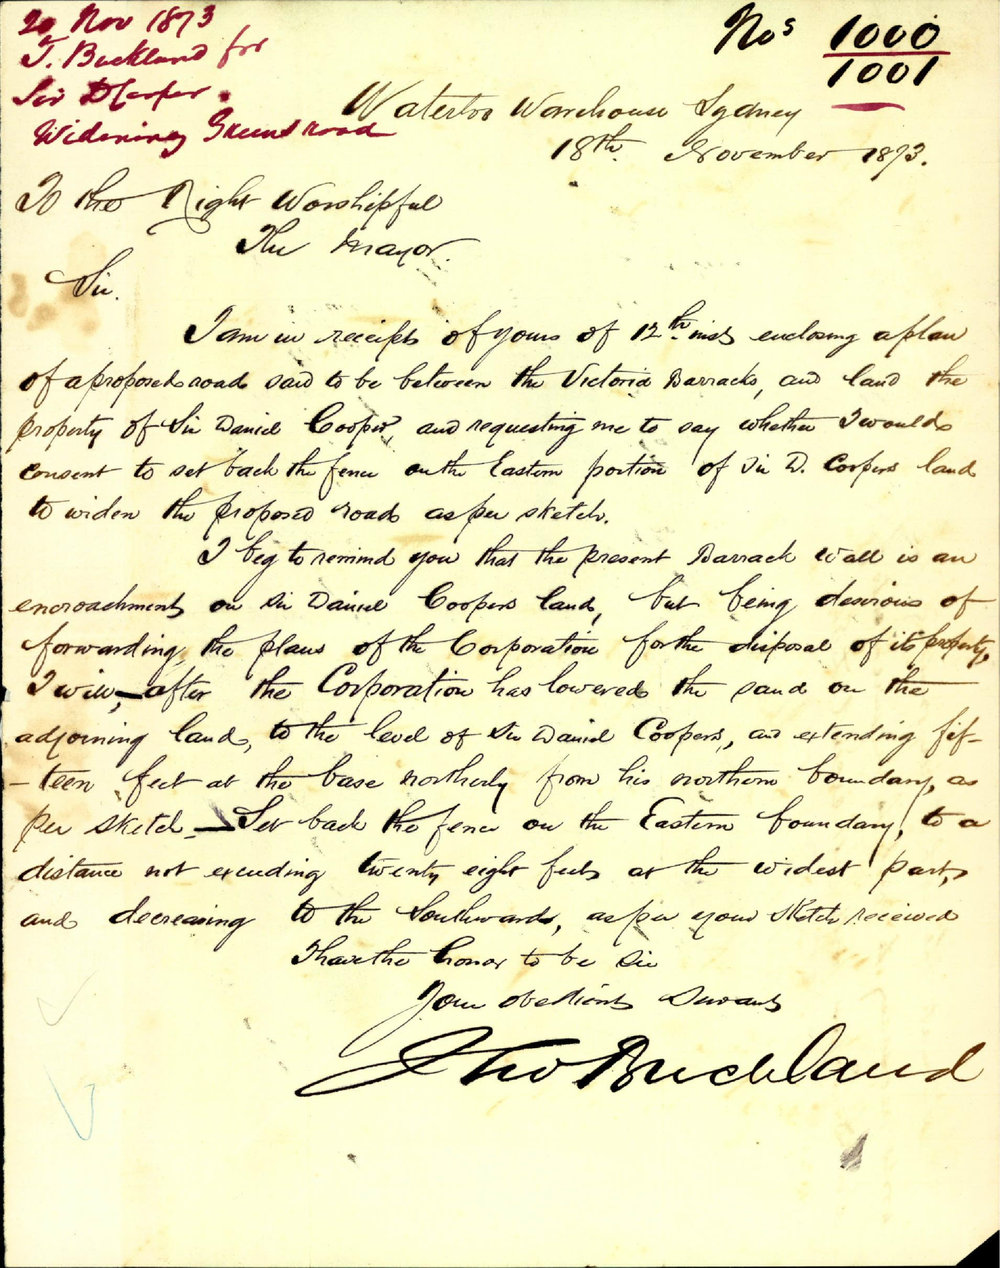 20 Nov 1873
T. Buckland for
Sir D Cooper
Widening Greens road
Nos 1000
1001
Waterloo Warehouse Sydney
18th. November 1873.
To the Right Worshipful
The Mayor.
Sir.
I am in receipt of yours of 12th. inst enclosing a plan
of a proposed road said to be between the Victoria Barracks, and land the
property of Sir Daniel Cooper, and requesting me to say whether I would
consent to set back the fence on the Eastern portion of Sir D. Coopers land
to widen the proposed road as per sketch.
I beg to remind you that the present Barrack Wall is an
encroachment on Sir Daniel Coopers land, but being desirous of
forwarding, the plans of the Corporation for the disposal of its property,
I will,—after the Corporation has lowered the sand on the
adjoining land, to the level of Sir Daniel Coopers, and extending fif-
-teen feet at the base northerly from his northern boundary, as
per sketch,—Set back the fence on the Eastern boundary, to a
distance not exceeding twenty eight feet at the widest part,
and decreasing to the Southward, as per your sketch received
I have the honor to be Sir
Your obedient Servant
Thos Buckland